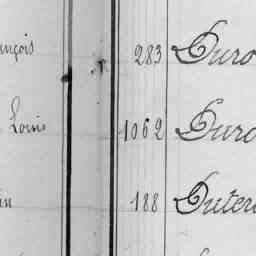 ançois 283 Duro
Louis 1062 Duro
in 188 Duter